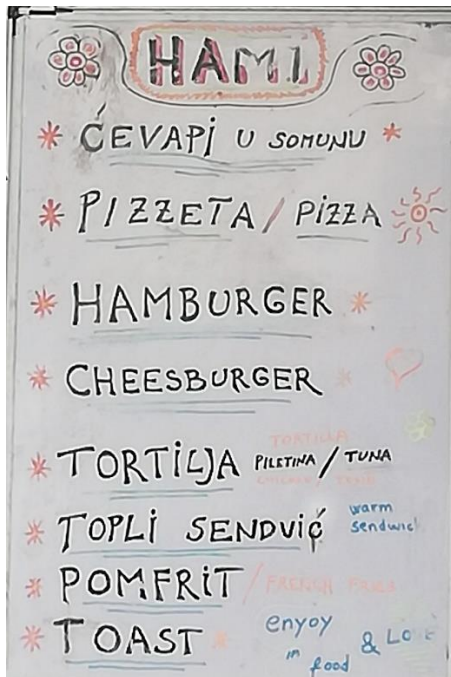 HAMI
ĆEVAPI U SOMUNU
PIZZETA / PIZZA
HAMBURGER
CHEESBURGER
TORTILLA
TORTILJA PILETINA / TUNA
TOPLI SENDVIČ warm
sendwich
POMFRIT / FRENCH FRIES
TOAST
enyoy & LOVE
in food